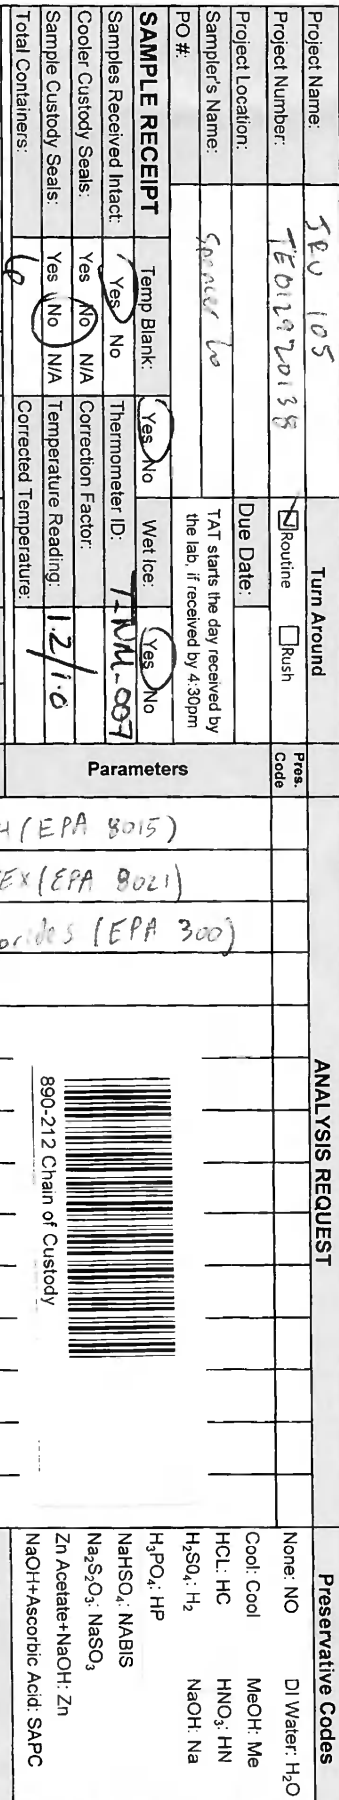 Project Name: JRU 105
Project Number: TE012920138
Project Location:
Sampler's Name: Spencer Lo
PO #:
Turn Around
Routine Rush
Due Date:
TAT starts the day received by
the lab, if received by 4:30pm
SAMPLE RECEIPT Temp Blank: Yes No Wet Ice: Yes No
Samples Received Intact: Yes No Thermometer ID: T-NM-007
Cooler Custody Seals: Yes No N/A Correction Factor:
Sample Custody Seals: Yes No N/A Temperature Reading: 1.2/1.0
Total Containers: 6 Corrected Temperature:
Pres.
Code
Parameters
ANALYSIS REQUEST
(EPA 8015)
(EPA 8021)
(EPA 300)
890-212 Chain of Custody
Preservative Codes
None: NO DI Water: H₂O
Cool: Cool MeOH: Me
HCL: HC HNO₃: HN
H₂SO₄: H₂ NaOH: Na
H₃PO₄: HP
NaHSO₄: NABIS
Na₂S₂O₃: NaSO₃
Zn Acetate+NaOH: Zn
NaOH+Ascorbic Acid: SAPC